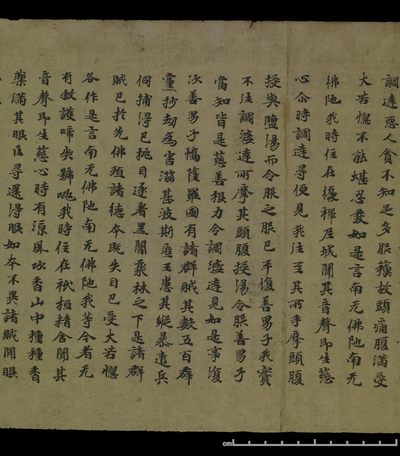 調達惡人貪不知足多服蘓故頭痛腹滿受
大苦惱不能堪忍發如是言南无佛陁南无
佛陁我時住在優禪尼城聞其音聲即生慈
心尒時調達尋便見我往至其所手摩頭腹
授與鹽湯而令服之服已平復善男子我實
不往調婆達所摩其頭腹授湯令服善男子
當知皆是慈善根力令調婆達見如是事復
次善男子憍薩羅國有諸群賊其數五百群
黨抄劫為害滋甚波斯匿王患其縱暴遣兵
伺捕得已挑目逐著黑闇叢林之下是諸群
賊已於先佛殖諸德本既失目已受大苦惱
各作是言南无佛陁南无佛陁我等今者无
有救護啼哭號咷我時住在祇桓精舍聞其
音聲即生慈心時有涼風吹香山中種種香
藥滿其眼匡尋還得眼如本不異諸賊開眼
cm